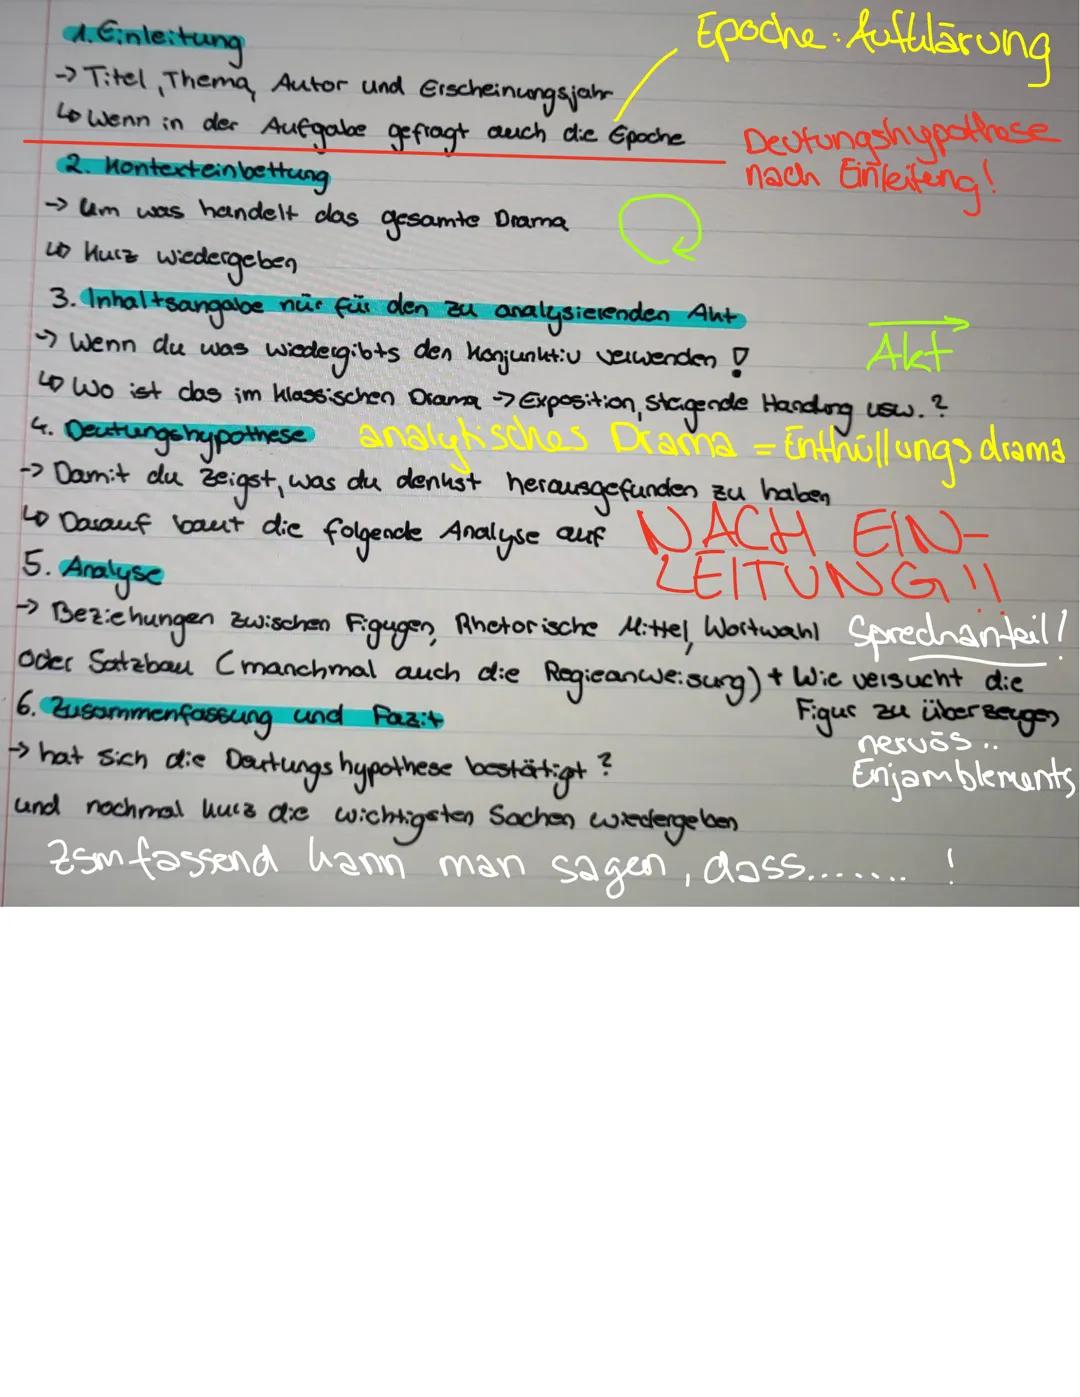 1. Einleitung
Epoche: Aufklärung
-> Titel, Thema, Autor und Erscheinungsjahr
↳ Wenn in der Aufgabe gefragt auch die Epoche
Deutungshypothese
nach Einleiteng!
2. Kontexteinbettung
-> Um was handelt das gesamte Drama
↳ Kurz wiedergeben
3. Inhaltsangabe nur für den zu analysierenden Akt
-> Wenn du was wiedergibts den Konjunktiv verwenden !
Akt
↳ Wo ist das im klassischen Drama -> Exposition, steigende Handlung usw. ?
4. Deutungshypothese analytisches Drama = Enthüllungsdrama
-> Damit du zeigst, was du denkst herausgefunden zu haben
↳ Darauf baut die folgende Analyse auf
NACH EIN-
LEITUNG!!
5. Analyse
-> Beziehungen zwischen Figugen, Rhetorische Mittel, Wortwahl Sprechanteil!
oder Satzbau (manchmal auch die Regieanweisung) + Wie versucht die
Figur zu überzeugen
6. Zusammenfassung und Fazit
nervös..
Enjamblements
-> hat sich die Deutungshypothese bestätigt ?
und nochmal kurz die wichtigsten Sachen wiedergeben
Zsmfassend kann man sagen, dass....... !